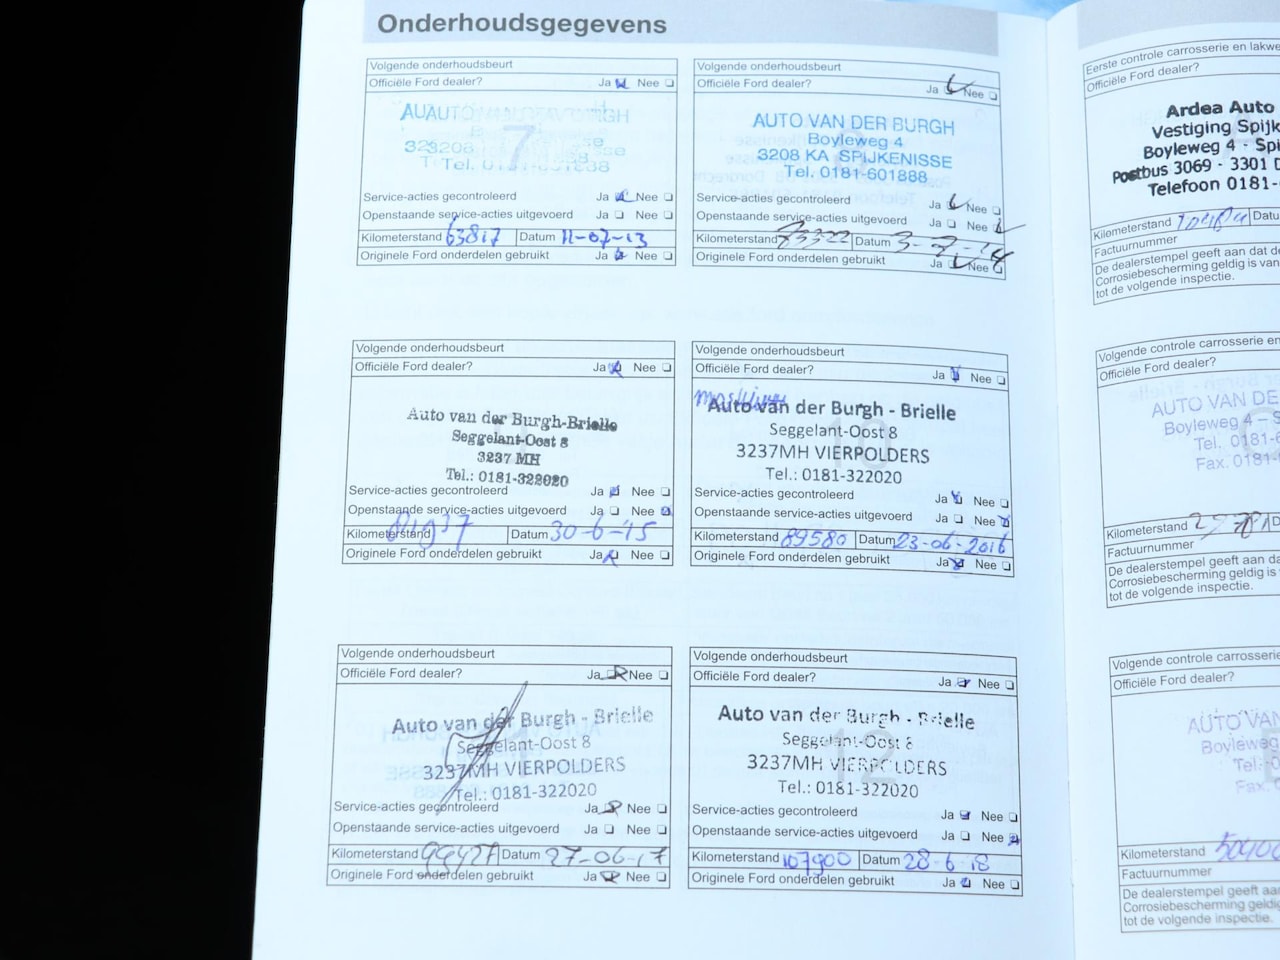 Onderhoudsgegevens
Volgende onderhoudsbeurt
Officiële Ford dealer? Ja Nee
7
Tel. 0181-601888
Service-acties gecontroleerd Ja Nee
Openstaande service-acties uitgevoerd Ja Nee
Kilometerstand 63817 Datum 11-07-13
Originele Ford onderdelen gebruikt Ja Nee
Volgende onderhoudsbeurt
Officiële Ford dealer? Ja Nee
AUTO VAN DER BURGH
Boyleweg 4
3208 KA SPIJKENISSE
Tel. 0181-601888
Service-acties gecontroleerd Ja Nee
Openstaande service-acties uitgevoerd Ja Nee
Kilometerstand Datum 3-7-'14
Originele Ford onderdelen gebruikt Ja Nee
Volgende onderhoudsbeurt
Officiële Ford dealer? Ja Nee
Auto van der Burgh-Brielle
Seggelant-Oost 8
3237 MH
Tel.: 0181-322020
Service-acties gecontroleerd Ja Nee
Openstaande service-acties uitgevoerd Ja Nee
Kilometerstand Datum 30-6-'15
Originele Ford onderdelen gebruikt Ja Nee
Volgende onderhoudsbeurt
Officiële Ford dealer? Ja Nee
10
Auto van der Burgh - Brielle
Seggelant-Oost 8
3237MH VIERPOLDERS
Tel.: 0181-322020
Service-acties gecontroleerd Ja Nee
Openstaande service-acties uitgevoerd Ja Nee
Kilometerstand 89580 Datum 23-06-2016
Originele Ford onderdelen gebruikt Ja Nee
Volgende onderhoudsbeurt
Officiële Ford dealer? Ja Nee
Auto van der Burgh - Brielle
Seggelant-Oost 8
3237MH VIERPOLDERS
Tel.: 0181-322020
Service-acties gecontroleerd Ja Nee
Openstaande service-acties uitgevoerd Ja Nee
Kilometerstand 99427 Datum 27-06-17
Originele Ford onderdelen gebruikt Ja Nee
Volgende onderhoudsbeurt
Officiële Ford dealer? Ja Nee
12
Auto van der Burgh - Brielle
Seggelant-Oost 8
3237MH VIERPOLDERS
Tel.: 0181-322020
Service-acties gecontroleerd Ja Nee
Openstaande service-acties uitgevoerd Ja Nee
Kilometerstand 107900 Datum 28-6-18
Originele Ford onderdelen gebruikt Ja Nee
Eerste controle carrosserie en lakwe
Officiële Ford dealer?
Ardea Auto
Vestiging Spijk
Boyleweg 4 - Spi
Postbus 3069 - 3301 D
Telefoon 0181-
Kilometerstand Datu
Factuurnummer
De dealerstempel geeft aan dat de
Corrosiebescherming geldig is van
tot de volgende inspectie.
Volgende controle carrosserie en
Officiële Ford dealer?
AUTO VAN DE
Boyleweg 4 - S
Tel. 0181-6
Fax. 0181-
Kilometerstand
Factuurnummer
De dealerstempel geeft aan da
Corrosiebescherming geldig is
tot de volgende inspectie.
Volgende controle carrosserie
Officiële Ford dealer?
AUTO VAN
Boyleweg
Tel. 0
Fax. 0
Kilometerstand
Factuurnummer
De dealerstempel geeft aa
Corrosiebescherming geldig
tot de volgende inspectie.